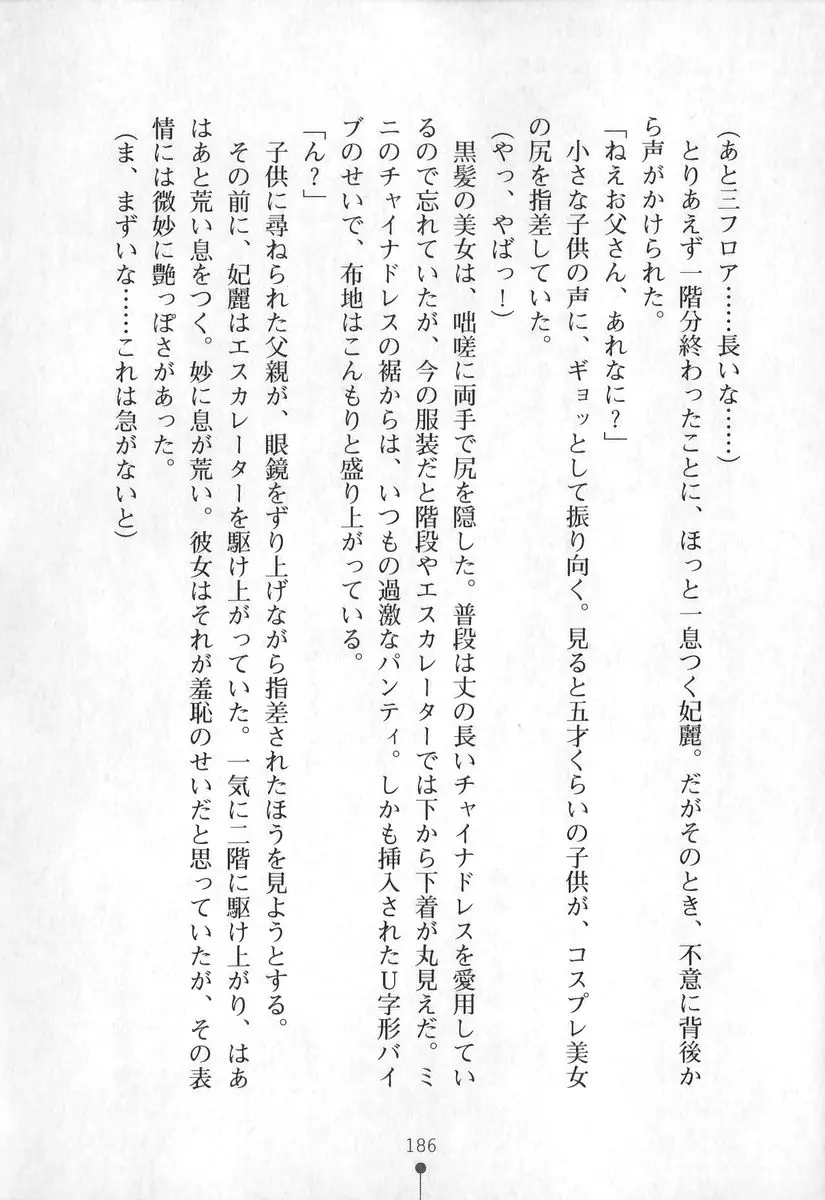 (あと三フロア……長いな……)
　とりあえず一階分終わったことに、ほっと一息つく妃麗。だがそのとき、不意に背後か
ら声がかけられた。
「ねえお父さん、あれなに?」
　小さな子供の声に、ギョッとして振り向く。見ると五才くらいの子供が、コスプレ美女
の尻を指差していた。
(やっ、やばっ!)
　黒髪の美女は、咄嗟に両手で尻を隠した。普段は丈の長いチャイナドレスを愛用してい
るので忘れていたが、今の服装だと階段やエスカレーターでは下から下着が丸見えだ。ミ
ニのチャイナドレスの裾からは、いつもの過激なパンティ。しかも挿入されたU字形バイ
ブのせいで、布地はこんもりと盛り上がっている。
「ん?」
　子供に尋ねられた父親が、眼鏡をずり上げながら指差されたほうを見ようとする。
　その前に、妃麗はエスカレーターを駆け上がっていた。一気に二階に駆け上がり、はあ
はあと荒い息をつく。妙に息が荒い。彼女はそれが羞恥のせいだと思っていたが、その表
情には微妙に艶っぽさがあった。
(ま、まずいな……これは急がないと)
186